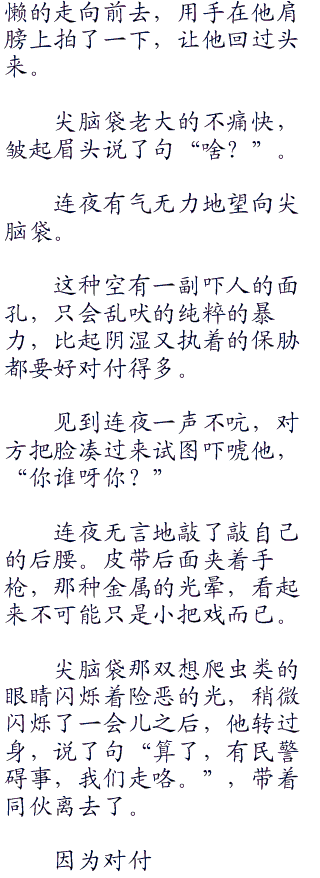 懒的走向前去，用手在他肩
膀上拍了一下，让他回过头
来。
尖脑袋老大的不痛快，
皱起眉头说了句“啥？”。
连夜有气无力地望向尖
脑袋。
这种空有一副吓人的面
孔，只会乱吠的纯粹的暴
力，比起阴湿又执着的保胁
都要好对付得多。
见到连夜一声不吭，对
方把脸凑过来试图吓唬他，
“你谁呀你？”
连夜无言地敲了敲自己
的后腰。皮带后面夹着手
枪，那种金属的光晕，看起
来不可能只是小把戏而已。
尖脑袋那双想爬虫类的
眼睛闪烁着险恶的光，稍微
闪烁了一会儿之后，他转过
身，说了句“算了，有民警
碍事，我们走咯。”，带着
同伙离去了。
因为对付